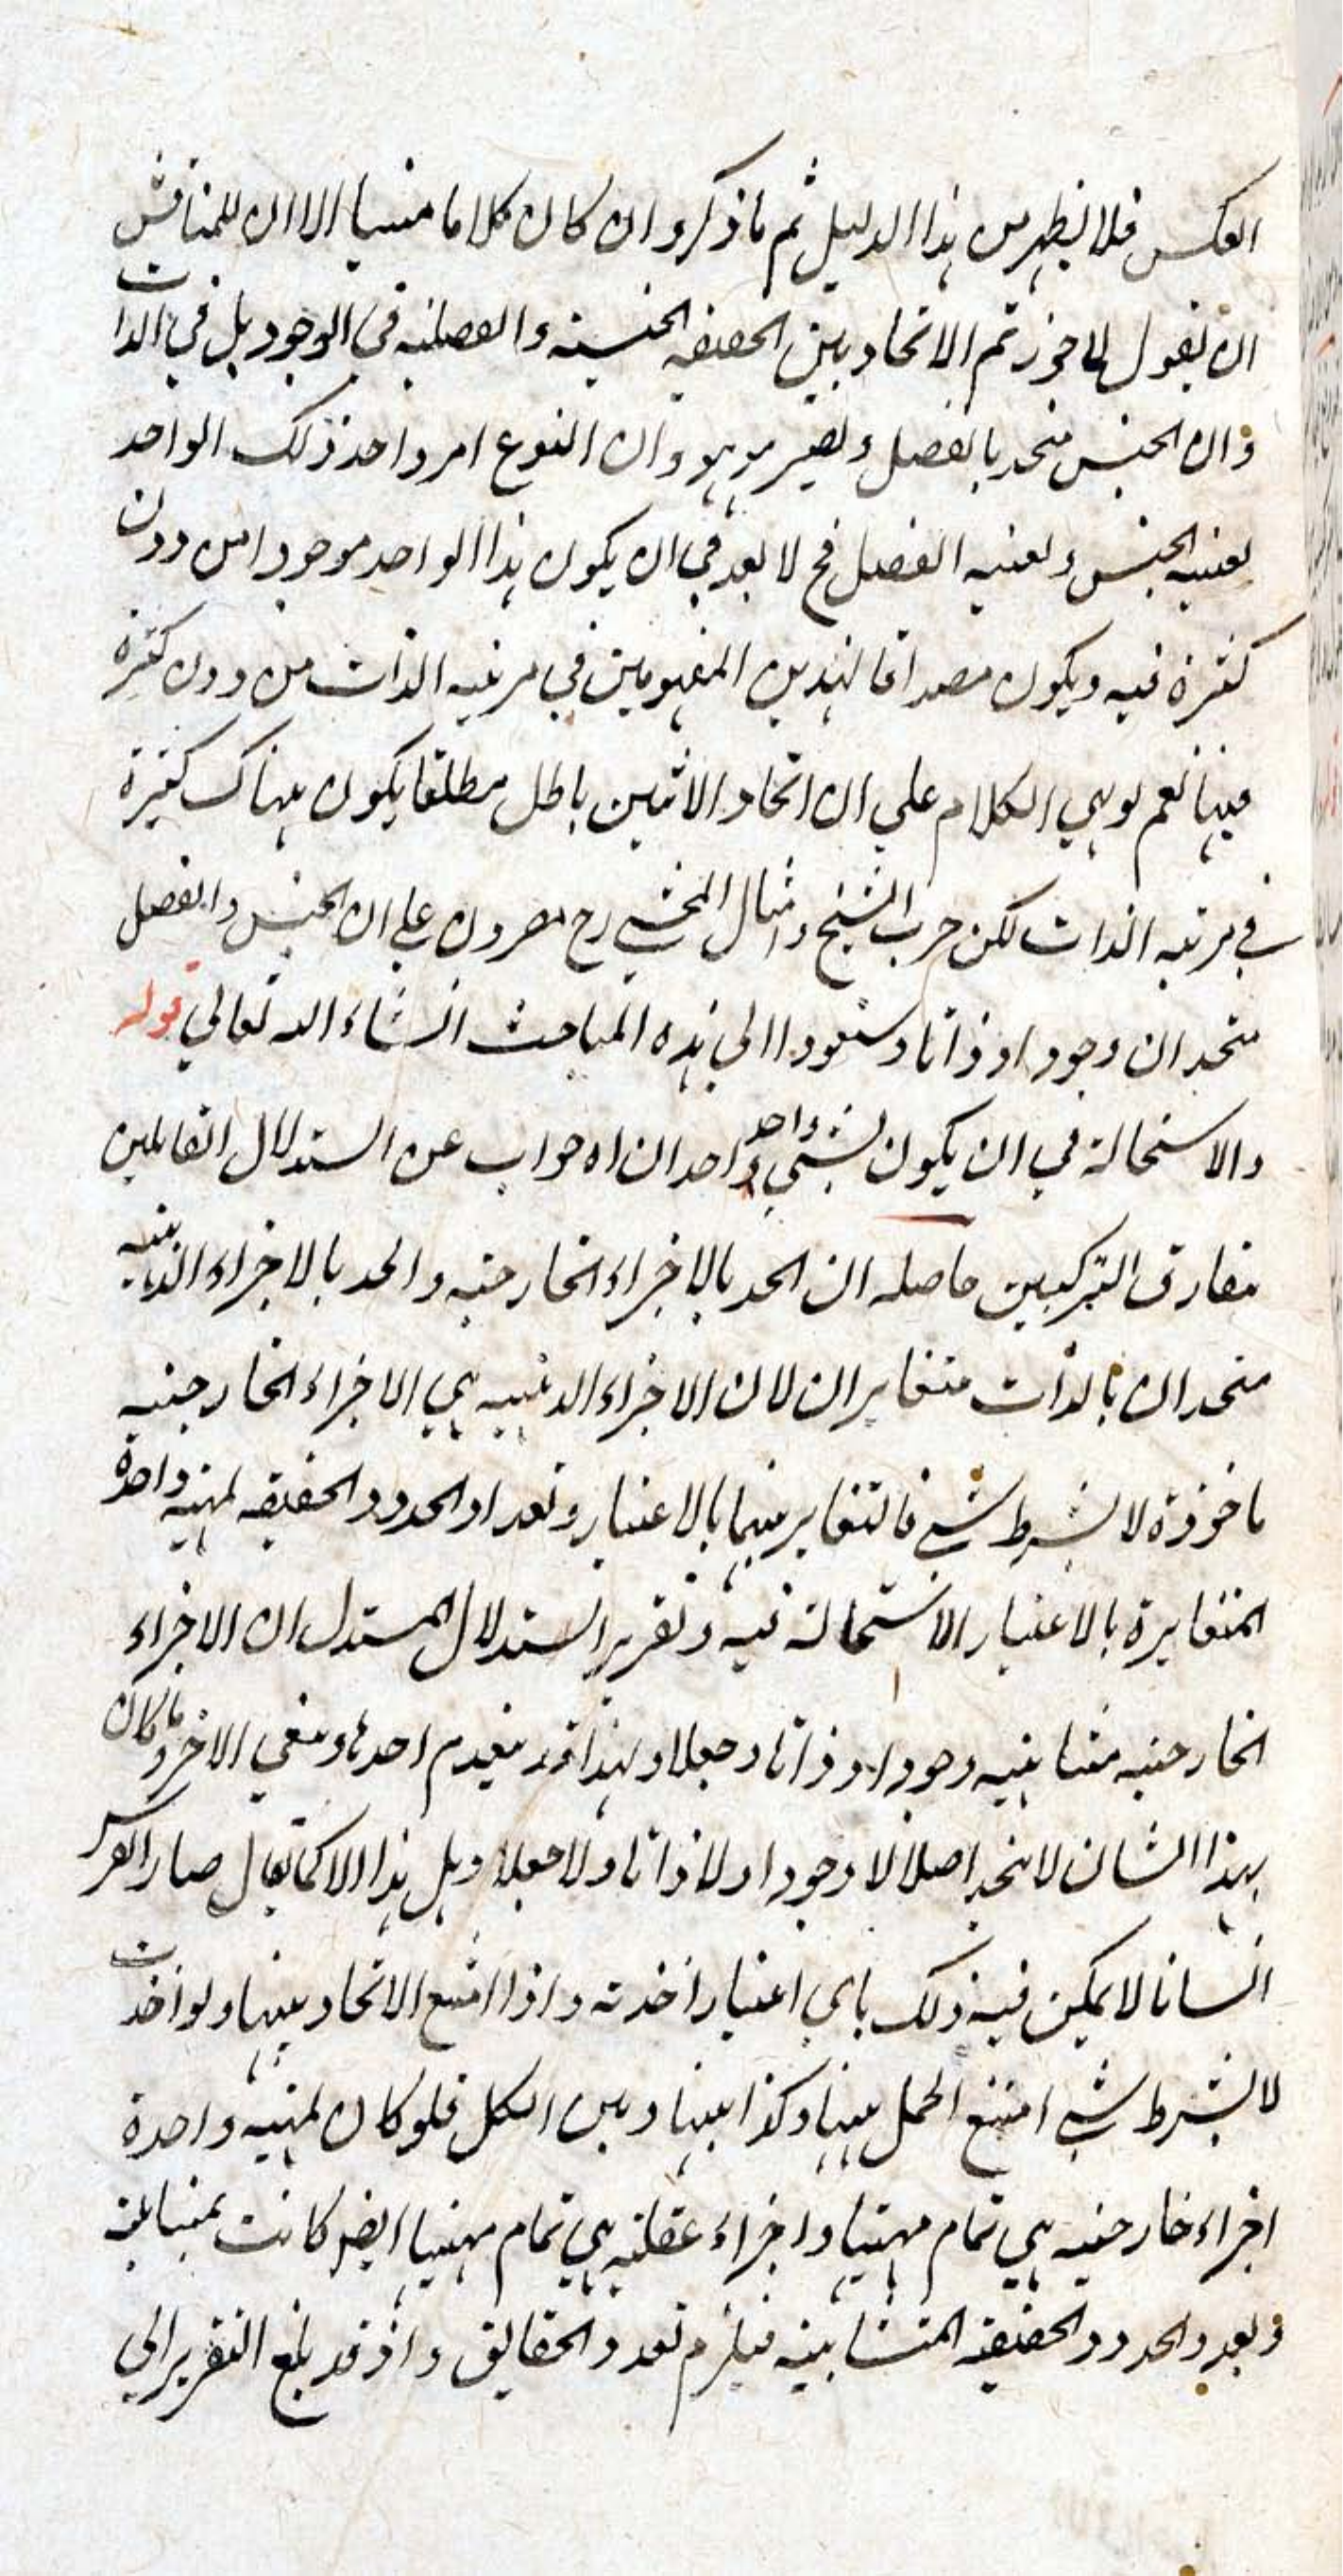 العكس فلا يظهر من هذا الدليل ثم ما ذكروا ان كان كلاما متينا الا ان للمناقش
ان يقول لما جوزتم الاتحاد بين الحقيقه الجنسيه والفصليه في الوجود بل في الذات
وان الجنس متحد بالفصل ويصير هو هو وان النوع امر واحد ذلك الواحد
بعينه الجنس وبعينه الفصل فح لا بعد في ان يكون هذا الواحد موجودا من دون
كثرة فيه ويكون مصداقا لهذين المفهومين في مرتبه الذات من دون كثرة
فيها نعم لو بني الكلام علي ان اتحاد الاثنين باطل مطلقا يكون هناك كثيرة
في مرتبه الذات لكن حزب الشيخ وامثال المحشي رح مصرون علي ان الجنس والفصل
متحدان وجودا وذاتا وسنعود الي هذه المباحث انشاء الله تعالي قوله
والاستحالة في ان يكون لشئ واحد واحدان اه جواب عن استدلال القائلين
بفارق التركيبين حاصله ان الحد بالاجزاء الخارجيه والحد بالاجزاء الذهنيه
متحدان بالذات متغايران لان الاجزاء الذهنيه هي الاجزاء الخارجيه
ماخوذة لا بشرط شي فالتغاير بينهما بالاعتبار وتعداد الحدود الحقيقه لمهيه واحدة
المتغايرة بالاعتبار لا استحالة فيه وتقرير استدلال المستدل ان الاجزاء
الخارجيه متباينيه وجودا وذاتا وجعلا ولهذا قد ينعدم احدها ويبقي الاخر وما كان
بهذا الشان لا يتحد اصلا لا وجودا ولا ذاتا ولا جعلا وهل هذا الا كما يقال صار الفرس
انسانا لا يمكن فيه ذلك باي اعتبار اخذته واذا امتنع الاتحاد بينها ولو اخذت
لا بشرط شي امتنع الحمل بينها وكذا بينها وبين الكل فلو كان لمهيه واحدة
اجزاء خارجيه هي تمام مهيتها واجزاء عقليه هي تمام مهيتها ايضا كانت متباينة
وتعدد الحدود الحقيقه المتباينه فيلزم تعدد الحقايق واذ قد بلغ التقرير الي